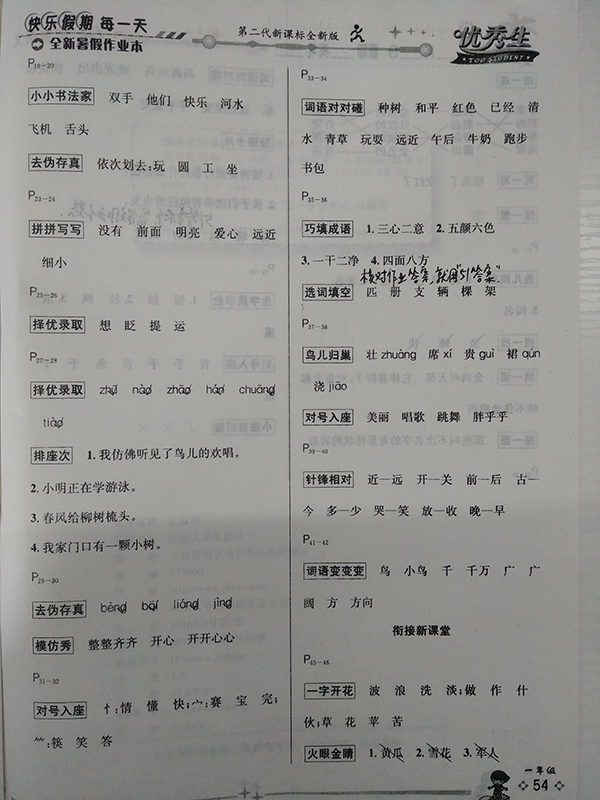 快乐假期 每一天
全新暑假作业本
第二代新课标全新版
优秀生
TOP STUDENT
P19-20
小小书法家 双手 他们 快乐 河水
飞机 舌头
去伪存真 依次划去:玩 圆 工 坐
P23-24
拼拼写写 没有 前面 明亮 爱心 远近
细小
P25-26
择优录取 想 眨 提 运
P27-28
择优录取
排座次 1.我仿佛听见了鸟儿的欢唱。
2.小明正在学游泳。
3.春风给柳树梳头。
4.我家门口有一颗小树。
P29-30
去伪存真
模仿秀 整整齐齐 开心 开开心心
P31-32
对号入座 忄:情 懂 快;宀:赛 宝 完;
⺮:筷 笑 答
P33-34
词语对对碰 种树 和平 红色 已经 清
水 青草 玩耍 远近 午后 牛奶 跑步
书包
P35-36
巧填成语 1.三心二意 2.五颜六色
3.一干二净 4.四面八方
核对作业答案,就用"51答案"
选词填空 匹 册 支 辆 棵 架
P37-38
鸟儿归巢 壮 zhuàng 席 xí 贵 guì 裙 qún
浇 jiāo
对号入座 美丽 唱歌 跳舞 胖乎乎
P39-40
针锋相对 近—远 开—关 前—后 古—
今 多—少 哭—笑 放—收 晚—早
P41-42
词语变变变 鸟 小鸟 千 千万 广 广
阔 方 方向
衔接新课堂
P45-46
一字开花 波 浪 洗 淡;做 作 什
伙;草 花 苹 苦
火眼金睛 1.黄瓜 2.雪花 3.军人
一年级
54